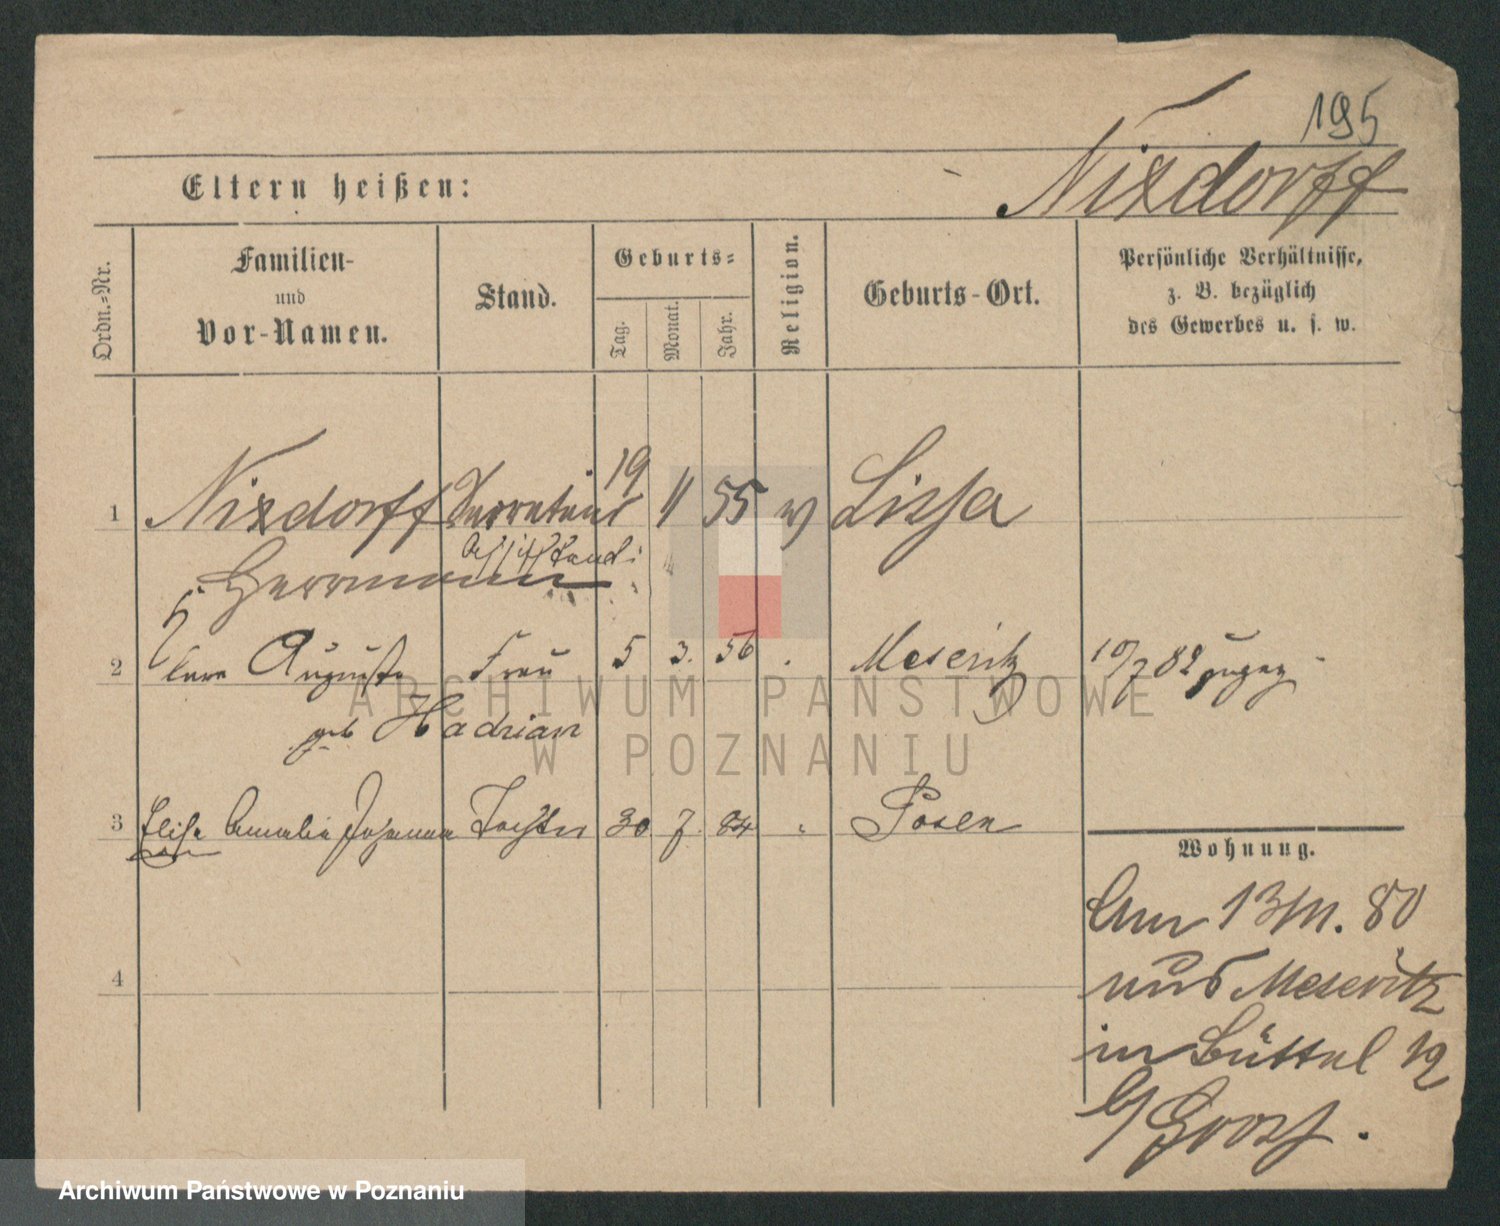 195
Eltern heißen:
Nixdorff
Ordn.-Nr.
Familien-
und
Vor-Namen.
Stand.
Geburts-
Tag.
Monat.
Jahr.
Religion.
Geburts-Ort.
Persönliche Verhältnisse,
z. B. bezüglich
des Gewerbes u. s. w.
1 Nixdorff 19 11 55 Lissa
Herrmann
2 Auguste Frau 5 3. 56 Meseritz 10/7 82 zugez.
geb Hadrian
3 Elise Amalie Johanna Tochter 30 7 84 Posen
4
Wohnung.
Am 13/11. 80
aus Meseritz
in Büttel 19
b/
ARCHIWUM PAŃSTWOWE
W POZNANIU
Archiwum Państwowe w Poznaniu